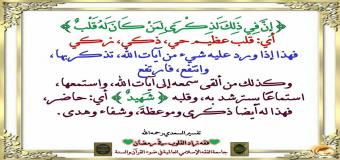 ﴿ إِنَّ فِي ذَٰلِكَ لَذِكْرَىٰ لِمَن كَانَ لَهُ قَلْبٌ ﴾
أي: قلب عظيم حي، ذكي، زكي
فهذا إذا ورد عليه شيء من آيات الله، تذكر بها،
وانتفع، فارتفع
وكذلك من ألقى سمعه إلى آيات الله، واستمعها،
استماعًا يسترشد به، وقلبه ﴿ شَهِيدٌ ﴾ أي: حاضر،
فهذا له أيضا ذكرى وموعظة، وشفاء وهدى.
تفسير السعدي رحمه الله
جامعة الفقه الإسلامي العالمية في ضوء القرآن والسنة